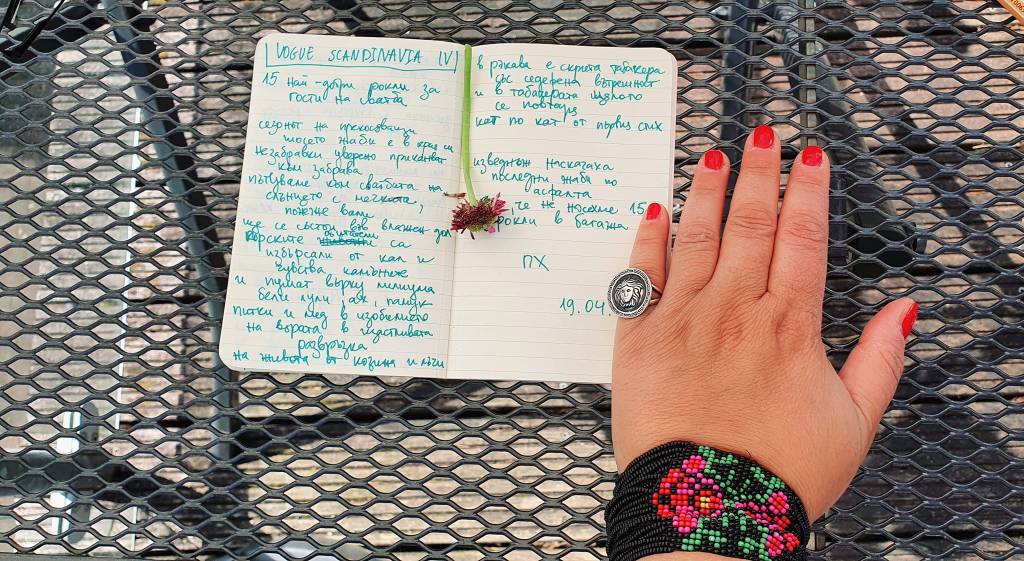 VOGUE SCANDINAVIA (V)
15 най-добри рокли за
гости на сватба
сезонът на прекосяващи
шосето жаби е в края си
незабравки уверено прикачват
към забрава
пътуваме към сватбата на
слънцето с мечката,
понеже вали
ще се състои във влажен дол
горските обитатели са
избърсали от кал и
чувства, камъните
и пушат върху
бели лули, ах, пашк
питки и мед в изобилието
на вярата в щастливата
развръзка
на живота от козина и лъчи
в ръкава е скрита табакера
със седефена вътрешност
и в табакерата цялото
се повтаря
кат по кат от първия стих
изведнъж наскачаха
последни жаби по
асфалта
, че не носехме 15
рокли в багажа
ПХ
19.04